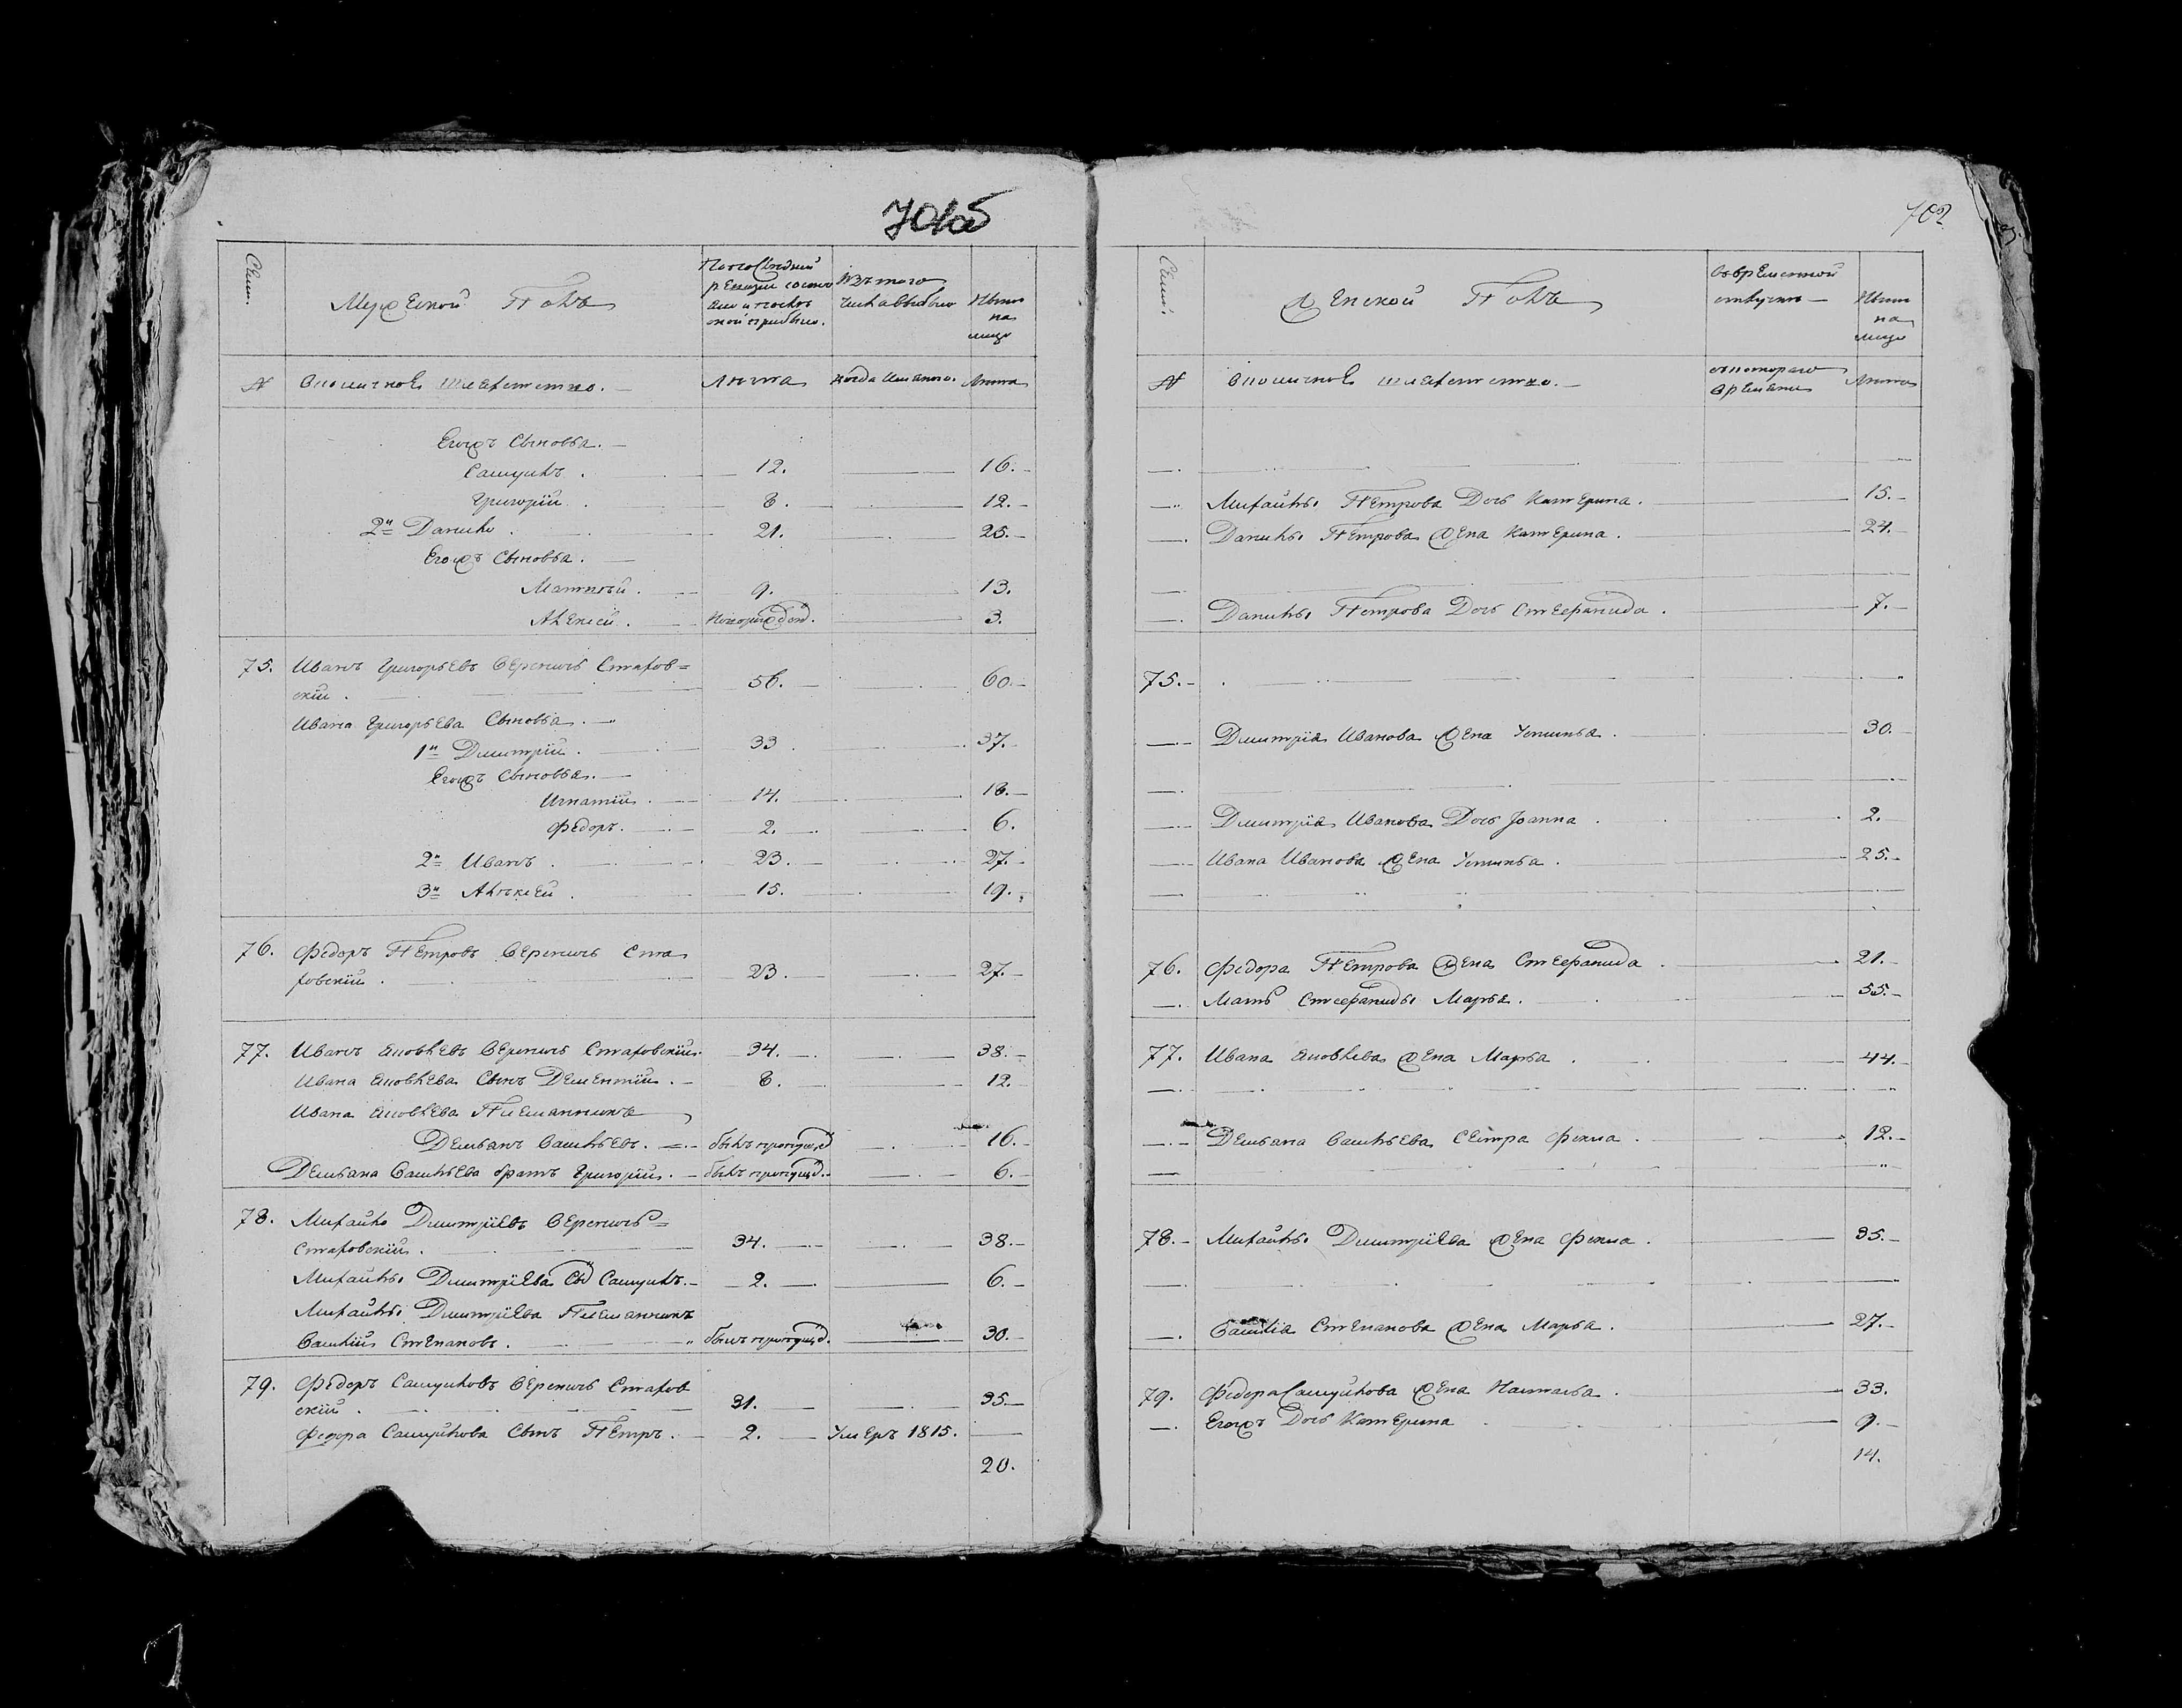 701об
Семи.
Мужеской Полъ
Последней
ревизии состо
яли и после
оной прибыло.
Изъ того
числа выбыло
Ныне
на
лицо
№ Околичное шляхетство.
Лета
Когда имянно.
Лета
Егожъ Сыновья.
Самуилъ. 12. 16.
Григорiй. 8. 12.
2й Данило. 21. 25.
Егожъ Сыновья.
Матвей. 9. 13.
Алексей. Новорожден. 3.
75. Иванъ Григорьевъ Вереничь Стахов=
скiй. 56. 60.
Ивана Григорьева Сыновья.
1й Дмитрiй. 33. 37.
Егожъ Сыновья.
Игнатiй. 14. 18.
Федоръ. 2. 6.
2й Иванъ. 23. 27.
3й Алексей. 15. 19.
76. Федоръ Петровъ Вереничь Ста
ховскiй. 23. 27.
77. Иванъ Яковлевъ Вереничь Стаховскiй. 34. 38.
Ивана Яковлева Сынъ Дементiй. 8. 12.
Ивана Яковлева Племянникъ
Демьянъ Васильевъ. былъ пропущ. 16.
Демьяна Васильева братъ Григорiй. былъ пропущ. 6.
78. Михайло Дмитрiевъ Вереничь=
Стаховскiй. 34. 38.
Михайлы Дмитрiева Сы Самуилъ. 2. 6.
Михайлы Дмитрiева Племянникъ
Василiй Степановъ. былъ пропущ. 30.
79. Федоръ Самуиловъ Вереничь Стахов
скiй. 31. 35.
Федора Самуйлова Сынъ Петръ. 2. Умеръ 1815.
20.
702
Семи.
Женской Полъ
Въ временной
отлучке
Ныне
на
лицо
№ Околичное шляхетство.
съ котораго
времени
Лета
Михайлы Петрова Дочь Катерина. 15.
Данилы Петрова Жена Катерина. 24.
Данилы Петрова Дочь Стефанида. 7.
75.
Дмитрiя Иванова Жена Устинья. 30.
Дмитрiя Иванова Дочь Iоанна. 2.
Ивана Иванова Жена Устинья. 25.
76. Федора Петрова Жена Стефанида. 21.
Мать Стефаниды Марья. 55.
77. Ивана Яковлева Жена Марья. 44.
Демьяна Васильева Сестра Фекла. 12.
78. Михайлы Дмитрiева Жена Фекла. 35.
Василiа Степанова Жена Марья. 27.
79. Федора Самуйлова Жена Наталья. 33.
Егожъ Дочь Катерина 9.
14.